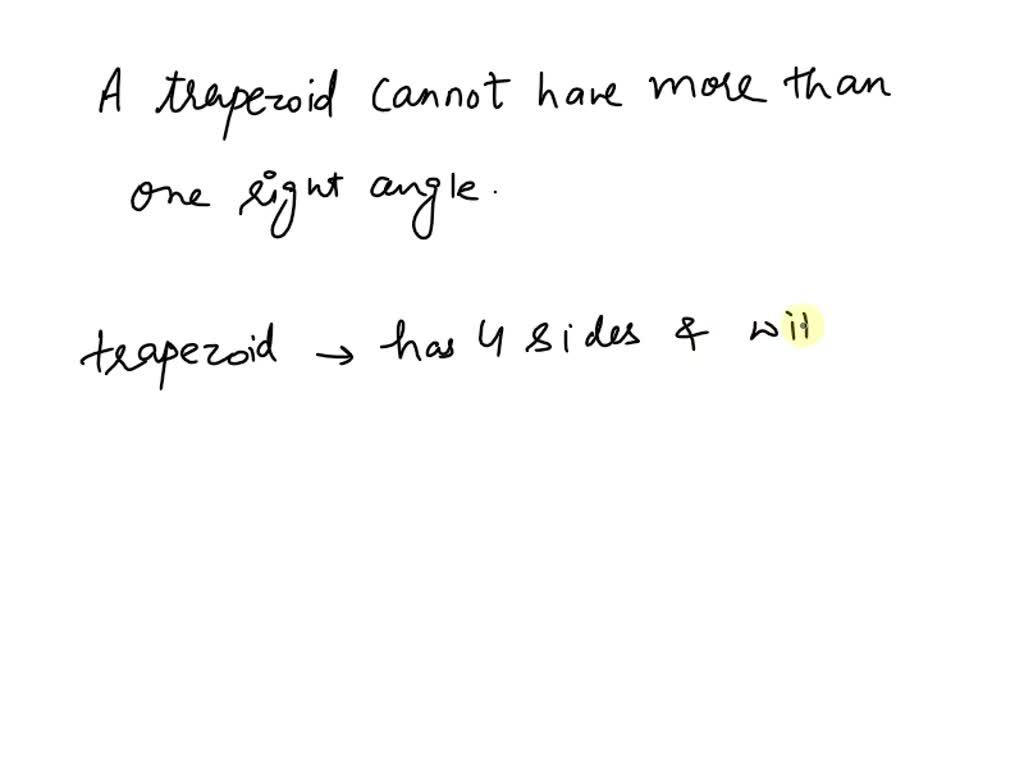 A trapezoid cannot have more than
one right angle.
trapezoid → has 4 sides & wit